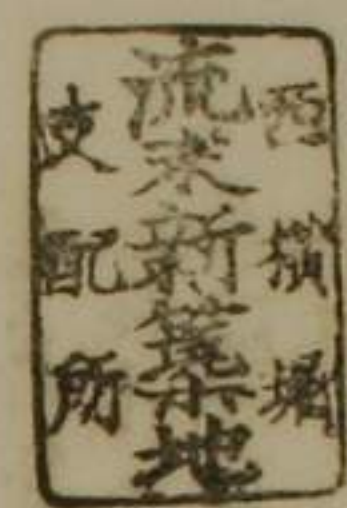 西横堀
流末新築地
支配所